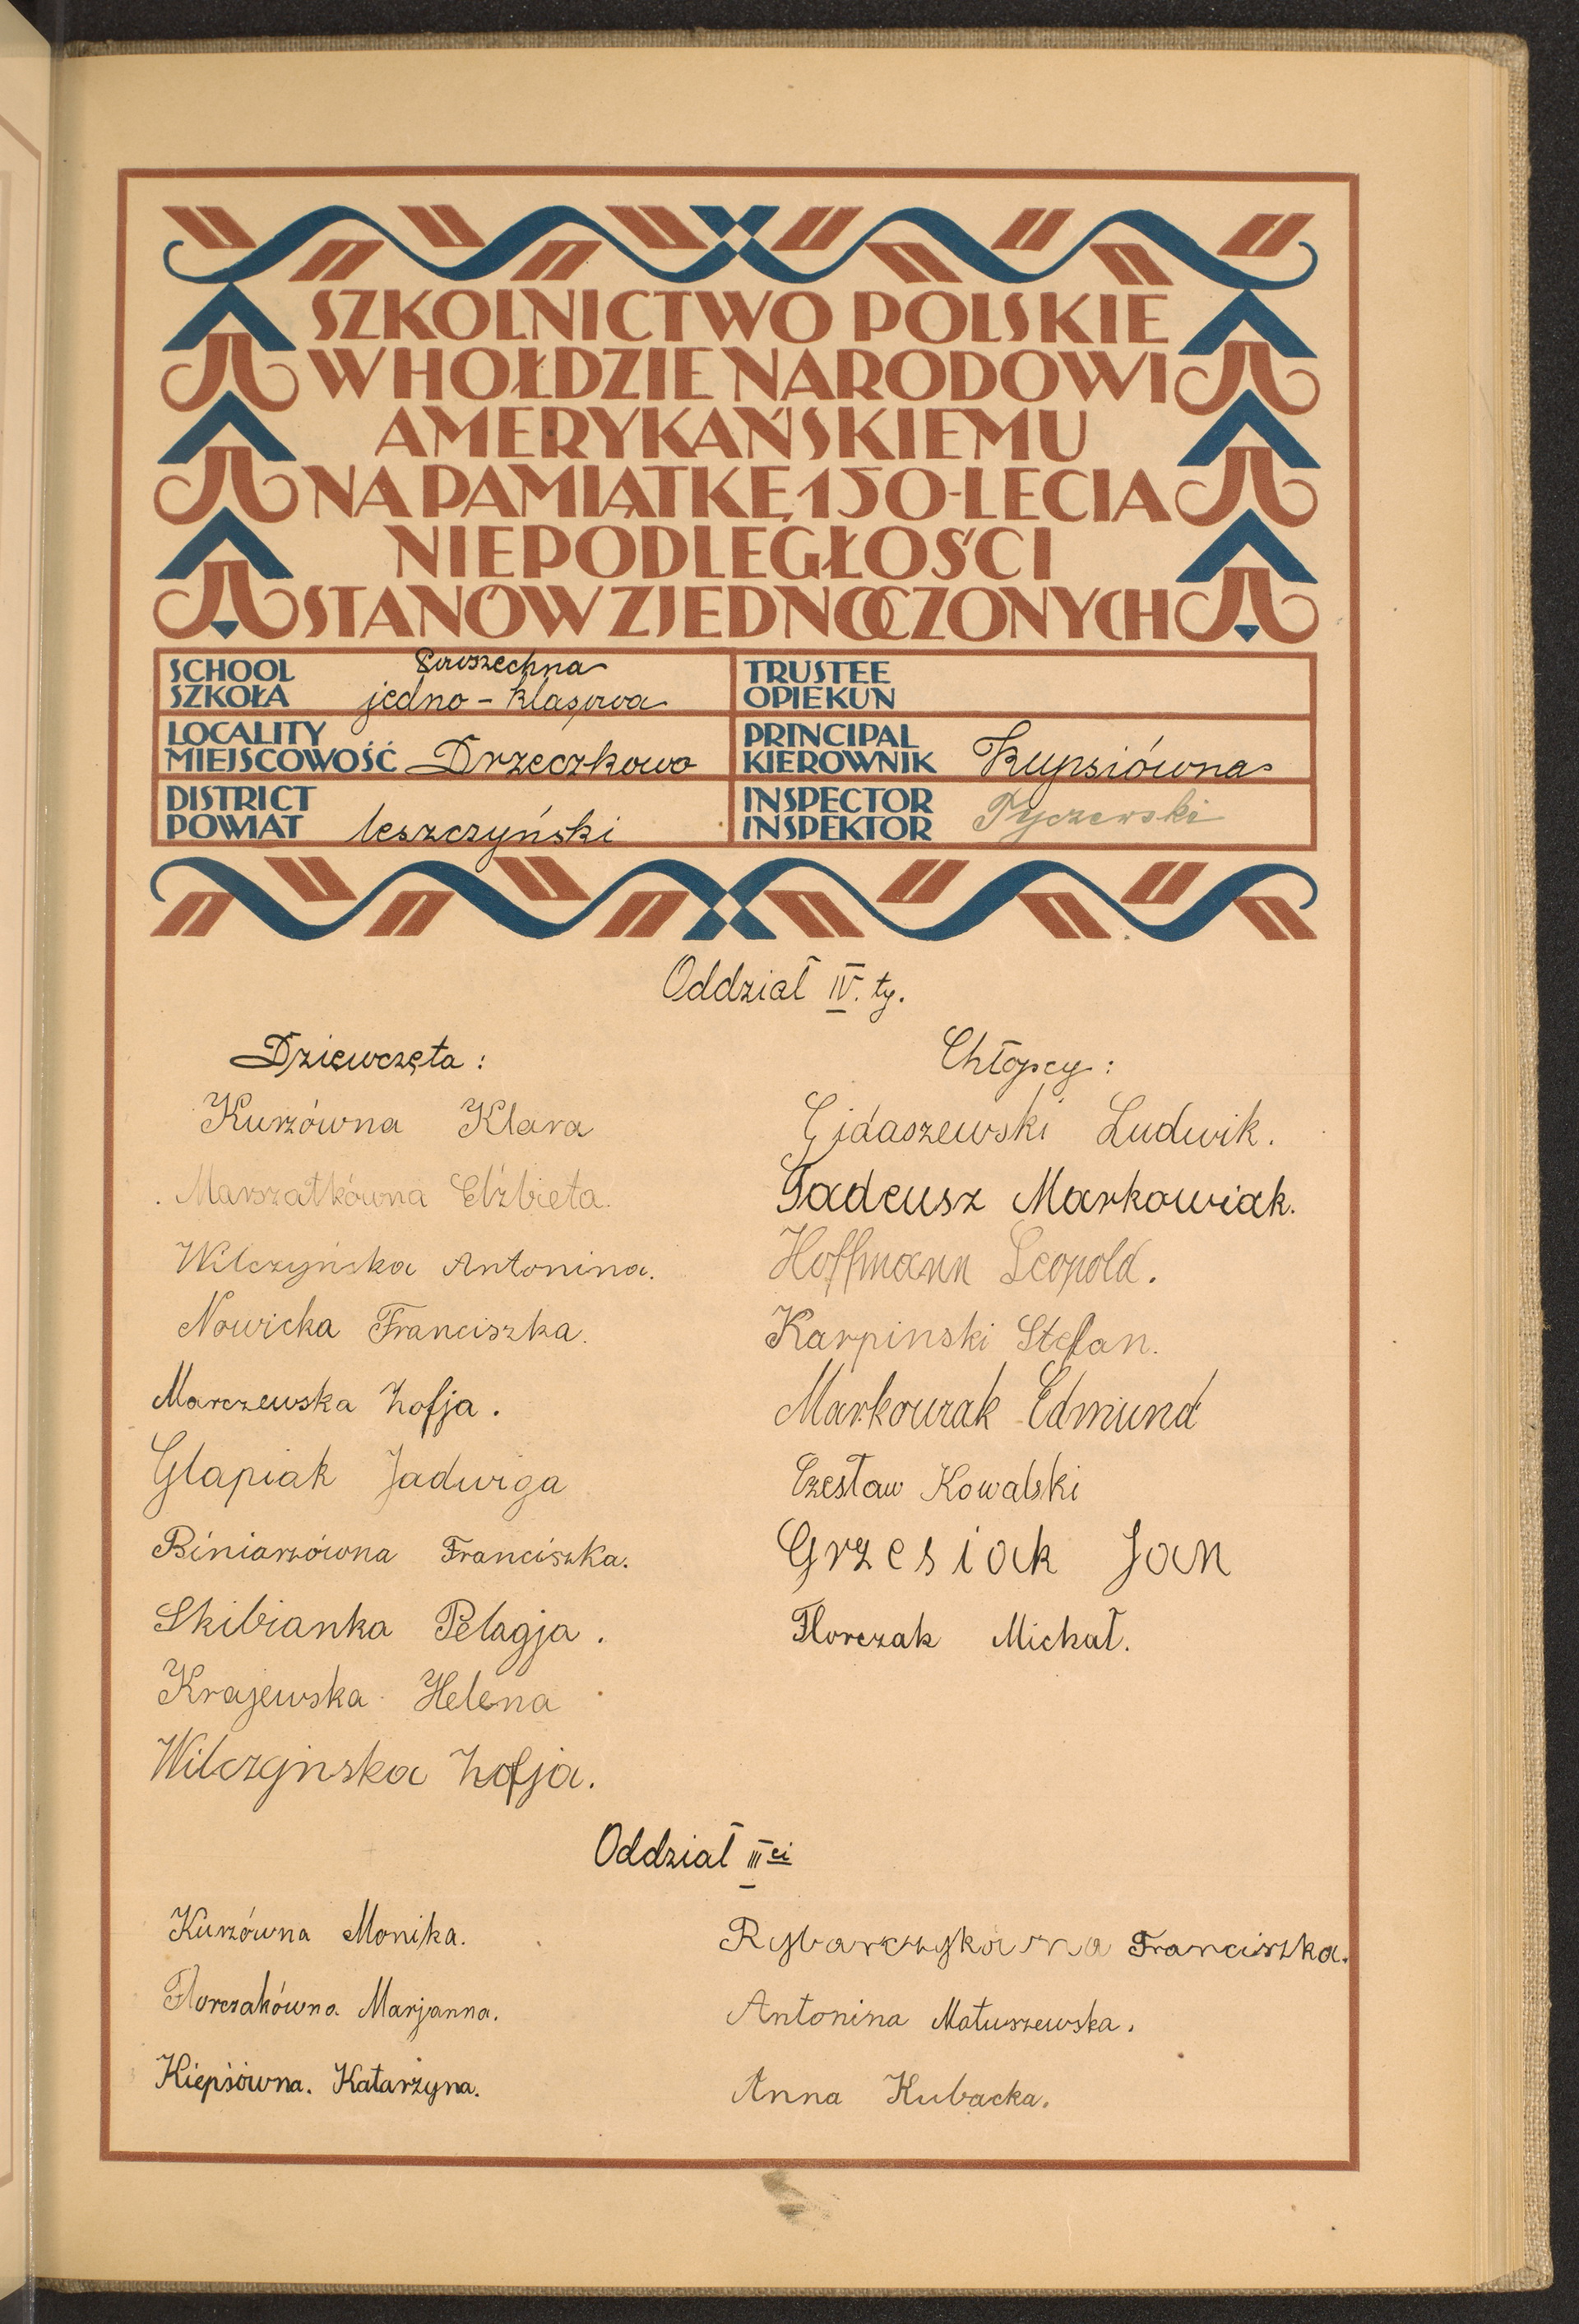 SZKOLNICTWO POLSKIE
W HOŁDZIE NARODOWI
AMERYKAŃSKIEMU
NA PAMIĄTKĘ 150-LECIA
NIEPODLEGŁOŚCI
STANÓW ZJEDNOCZONYCH
SCHOOL
SZKOŁA
Powszechna
jedno-klasowa
TRUSTEE
OPIEKUN
LOCALITY
MIEJSCOWOŚĆ
Drzeczkowo
PRINCIPAL
KIEROWNIK
Kupsiówna
DISTRICT
POWIAT
leszczyński
INSPECTOR
INSPEKTOR
Tyczewski
Oddział IV. ty.
Dziewczęta :
Kurzówna Klara
Marszałkówna Elżbieta.
Wilczyńska Antonina.
Nowicka Franciszka.
Marczewska Zofja.
Glapiak Jadwiga
Biniarzówna Franciszka.
Skibianka Pelagja.
Krajewska Helena
Wilczyńska Zofja.
Chłopcy :
Gidaszewski Ludwik.
Tadeusz Markowiak.
Hoffmann Leopold.
Karpinski Stefan.
Markowiak Edmund
Czesław Kowalski
Grzesiak Jan
Florczak Michał.
Oddział III ci
Kurzówna Monika.
Florczakówna Marjanna.
Kiepsówna. Katarzyna.
Rybarczykówna Franciszka.
Antonina Matuszewska.
Anna Kubacka.